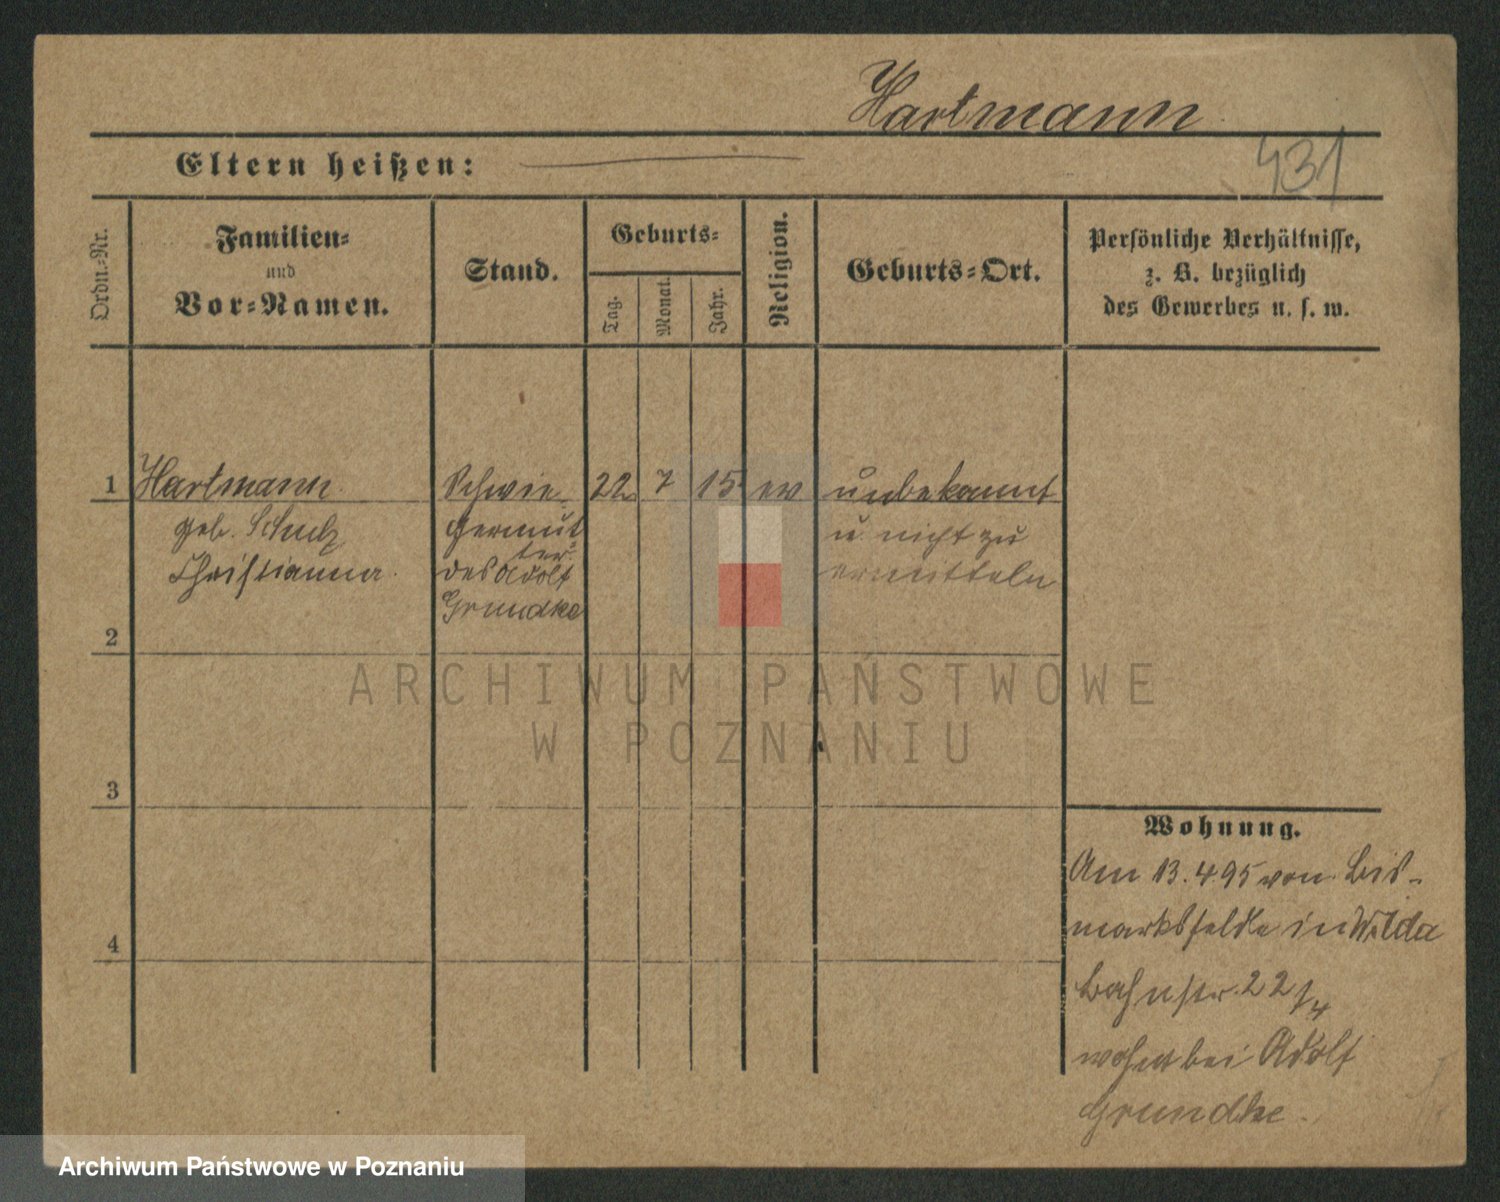 Hartmann
Eltern heißen:
431
Ordn.-Nr.
Familien-
und
Vor-Namen.
Stand.
Geburts-
Tag.
Monat.
Jahr.
Religion.
Geburts-Ort.
Persönliche Verhältnisse,
z. B. bezüglich
des Gewerbes u. s. w.
1 Hartmann Schwie- 22 7 15 ev unbekannt
geb. Schulz germut u nicht zu
ter.
Christianna des Adolf ermitteln
Grundke
2
ARCHIWUM PAŃSTWOWE
W POZNANIU
3
Wohnung.
Am 13.4.95 von Bis-
marksfelde in Wilda
4
Bahnstr. 22/4
wohnt bei Adolf
Grundke.
Archiwum Państwowe w Poznaniu